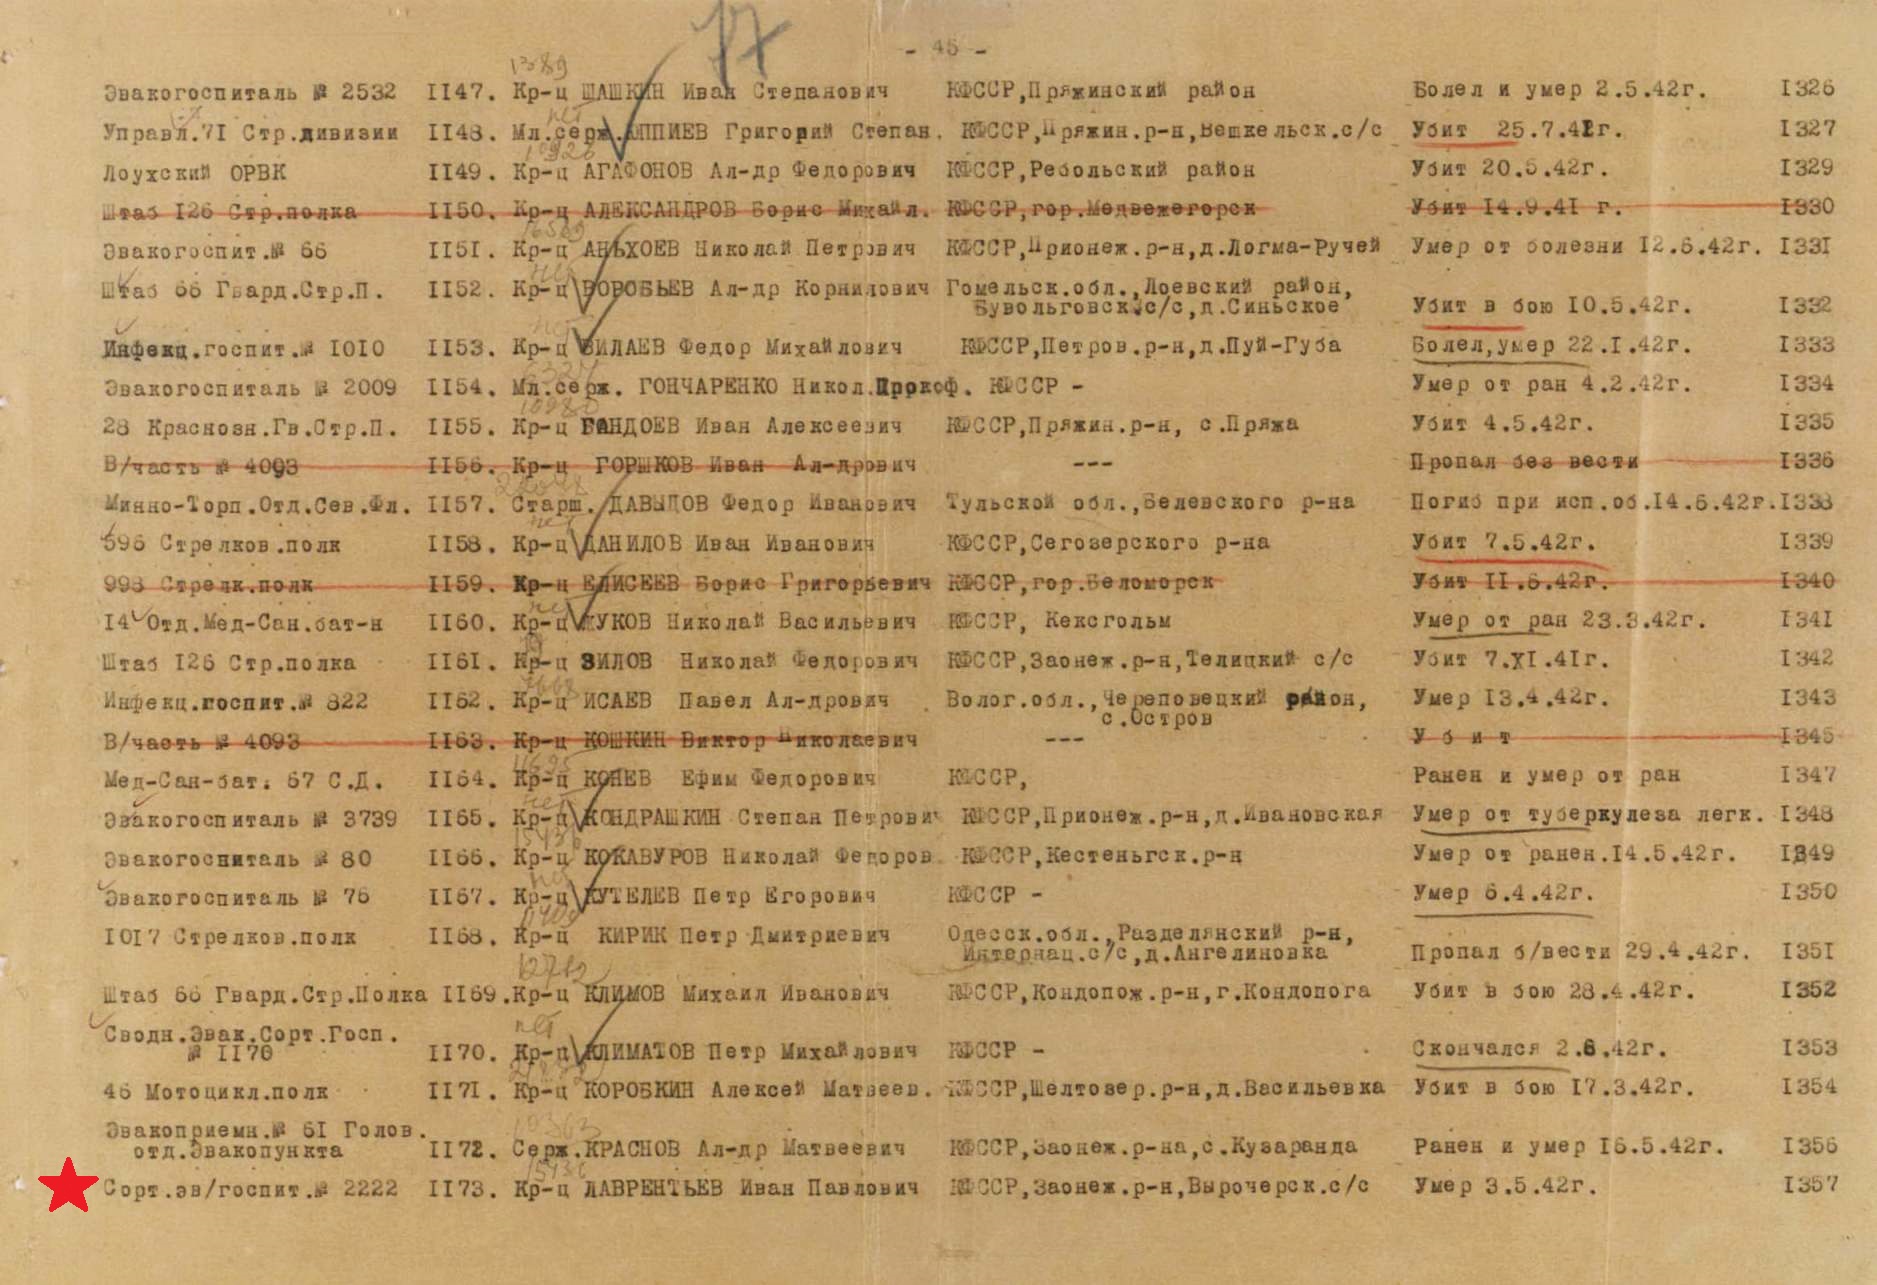 17
- 45 -
1389
Эвакогоспиталь № 2532 II47. Кр-ц ШАШКИН Иван Степанович КФССР,Пряжинский район Болел и умер 2.5.42г. I326
нет
Управл.7I Стр.дивизии II48. Мл.серж. АППИЕВ Григорий Степан. КФССР,Пряжин.р-н,Вешкельск.с/с Убит 25.7.42г. I327
Лоухский ОРВК II49. Кр-ц АГАФОНОВ Ал-др Федорович КФССР,Ребольский район Убит 20.5.42г. I329
Штаб I26 Стр.полка II50. Кр-ц АЛЕКСАНДРОВ Борис Михайл. КФССР,гор.Медвежегорск Убит I4.9.4I г. I330
Эвакогоспит.№ 66 II5I. Кр-ц АНЬХОЕВ Николай Петрович КФССР,Прионеж.р-н,д.Логма-Ручей Умер от болезни I2.6.42г. I33I
нет
Штаб 66 Гвард.Стр.П. II52. Кр-ц ВОРОБЬЕВ Ал-др Корнилович Гомельск.обл.,Лоевский район,
Бувольговск.с/с,д.Синьское Убит в бою I0.5.42г. I332
нет
Инфекц.госпит.№ I0I0 II53. Кр-ц ВИЛАЕВ Федор Михайлович КФССР,Петров.р-н,д.Пуй-Губа Болел,умер 22.I.42г. I333
Эвакогоспиталь № 2009 II54. Мл.серж. ГОНЧАРЕНКО Никол.Прокоф. КФССР - Умер от ран 4.2.42г. I334
28 Краснозн.Гв.Стр.П. II55. Кр-ц ГАНДОЕВ Иван Алексеевич КФССР,Пряжин.р-н, с.Пряжа Убит 4.5.42г. I335
В/часть № 4093 II56. Кр-ц ГОРШКОВ Иван Ал-дрович --- Пропал без вести I336
Минно-Торп.Отд.Сев.Фл. II57. Старш. ДАВЫДОВ Федор Иванович Тульской обл.,Белевского р-на Погиб при исп.об.I4.6.42г.I338
нет
596 Стрелков.полк II58. Кр-ц ДАНИЛОВ Иван Иванович КФССР,Сегозерского р-на Убит 7.5.42г. I339
998 Стрелк.полк II59. Кр-ц ЕЛИСЕЕВ Борис Григорьевич КФССР,гор.Беломорск Убит II.6.42г. I340
нет
I4 Отд.Мед-Сан.бат-н II60. Кр-ц ЖУКОВ Николай Васильевич КФССР, Кексгольм Умер от ран 23.3.42г. I34I
Штаб I26 Стр.полка II6I. Кр-ц ЗИЛОВ Николай Федорович КФССР,Заонеж.р-н,Телицкий с/с Убит 7.XI.4Iг. I342
Инфекц.госпит.№ 822 II62. Кр-ц ИСАЕВ Павел Ал-дрович Волог.обл.,Череповецкий район, Умер I3.4.42г. I343
с.Остров
В/часть № 4093 II63. Кр-ц КОШКИН Виктор Николаевич --- У б и т I345
Мед-Сан-бат. 67 С.Д. II64. Кр-ц КОНЕВ Ефим Федорович КФССР, Ранен и умер от ран I347
нет
Эвакогоспиталь № 3739 II65. Кр-ц КОНДРАШКИН Степан Петрович КФССР,Прионеж.р-н,д.Ивановская Умер от туберкулеза легк. I348
Эвакогоспиталь № 80 II66. Кр-ц КОКАВУРОВ Николай Федоров. КФССР,Кестеньгск.р-н Умер от ранен.I4.5.42г. I349
нет
Эвакогоспиталь № 76 II67. Кр-ц КУТЕЛЕВ Петр Егорович КФССР - Умер 6.4.42г. I350
I0I7 Стрелков.полк II68. Кр-ц КИРИК Петр Дмитриевич Одесск.обл.,Разделянский р-н,
Интернац.с/с,д.Ангелиновка Пропал б/вести 29.4.42г. I35I
12712
Штаб 66 Гвард.Стр.Полка II69.Кр-ц КЛИМОВ Михаил Иванович КФССР,Кондопож.р-н,г.Кондопога Убит в бою 28.4.42г. I352
Сводн.Эвак.Сорт.Госп.
нет
№ II70 II70. Кр-ц КЛИМАТОВ Петр Михайлович КФССР - Скончался 2.6.42г. I353
46 Мотоцикл.полк II7I. Кр-ц КОРОБКИН Алексей Матвеев. КФССР,Шелтозер.р-н,д.Васильевка Убит в бою I7.3.42г. I354
Эвакоприемн.№ 6I Голов.
отд.Эвакопункта II72. Серж.КРАСНОВ Ал-др Матвеевич КФССР,Заонеж.р-на,с.Кузаранда Ранен и умер I6.5.42г. I356
Сорт.эв/госпит.№ 2222 II73. Кр-ц ЛАВРЕНТЬЕВ Иван Павлович КФССР,Заонеж.р-н,Вырочерск.с/с Умер 3.5.42г. I357